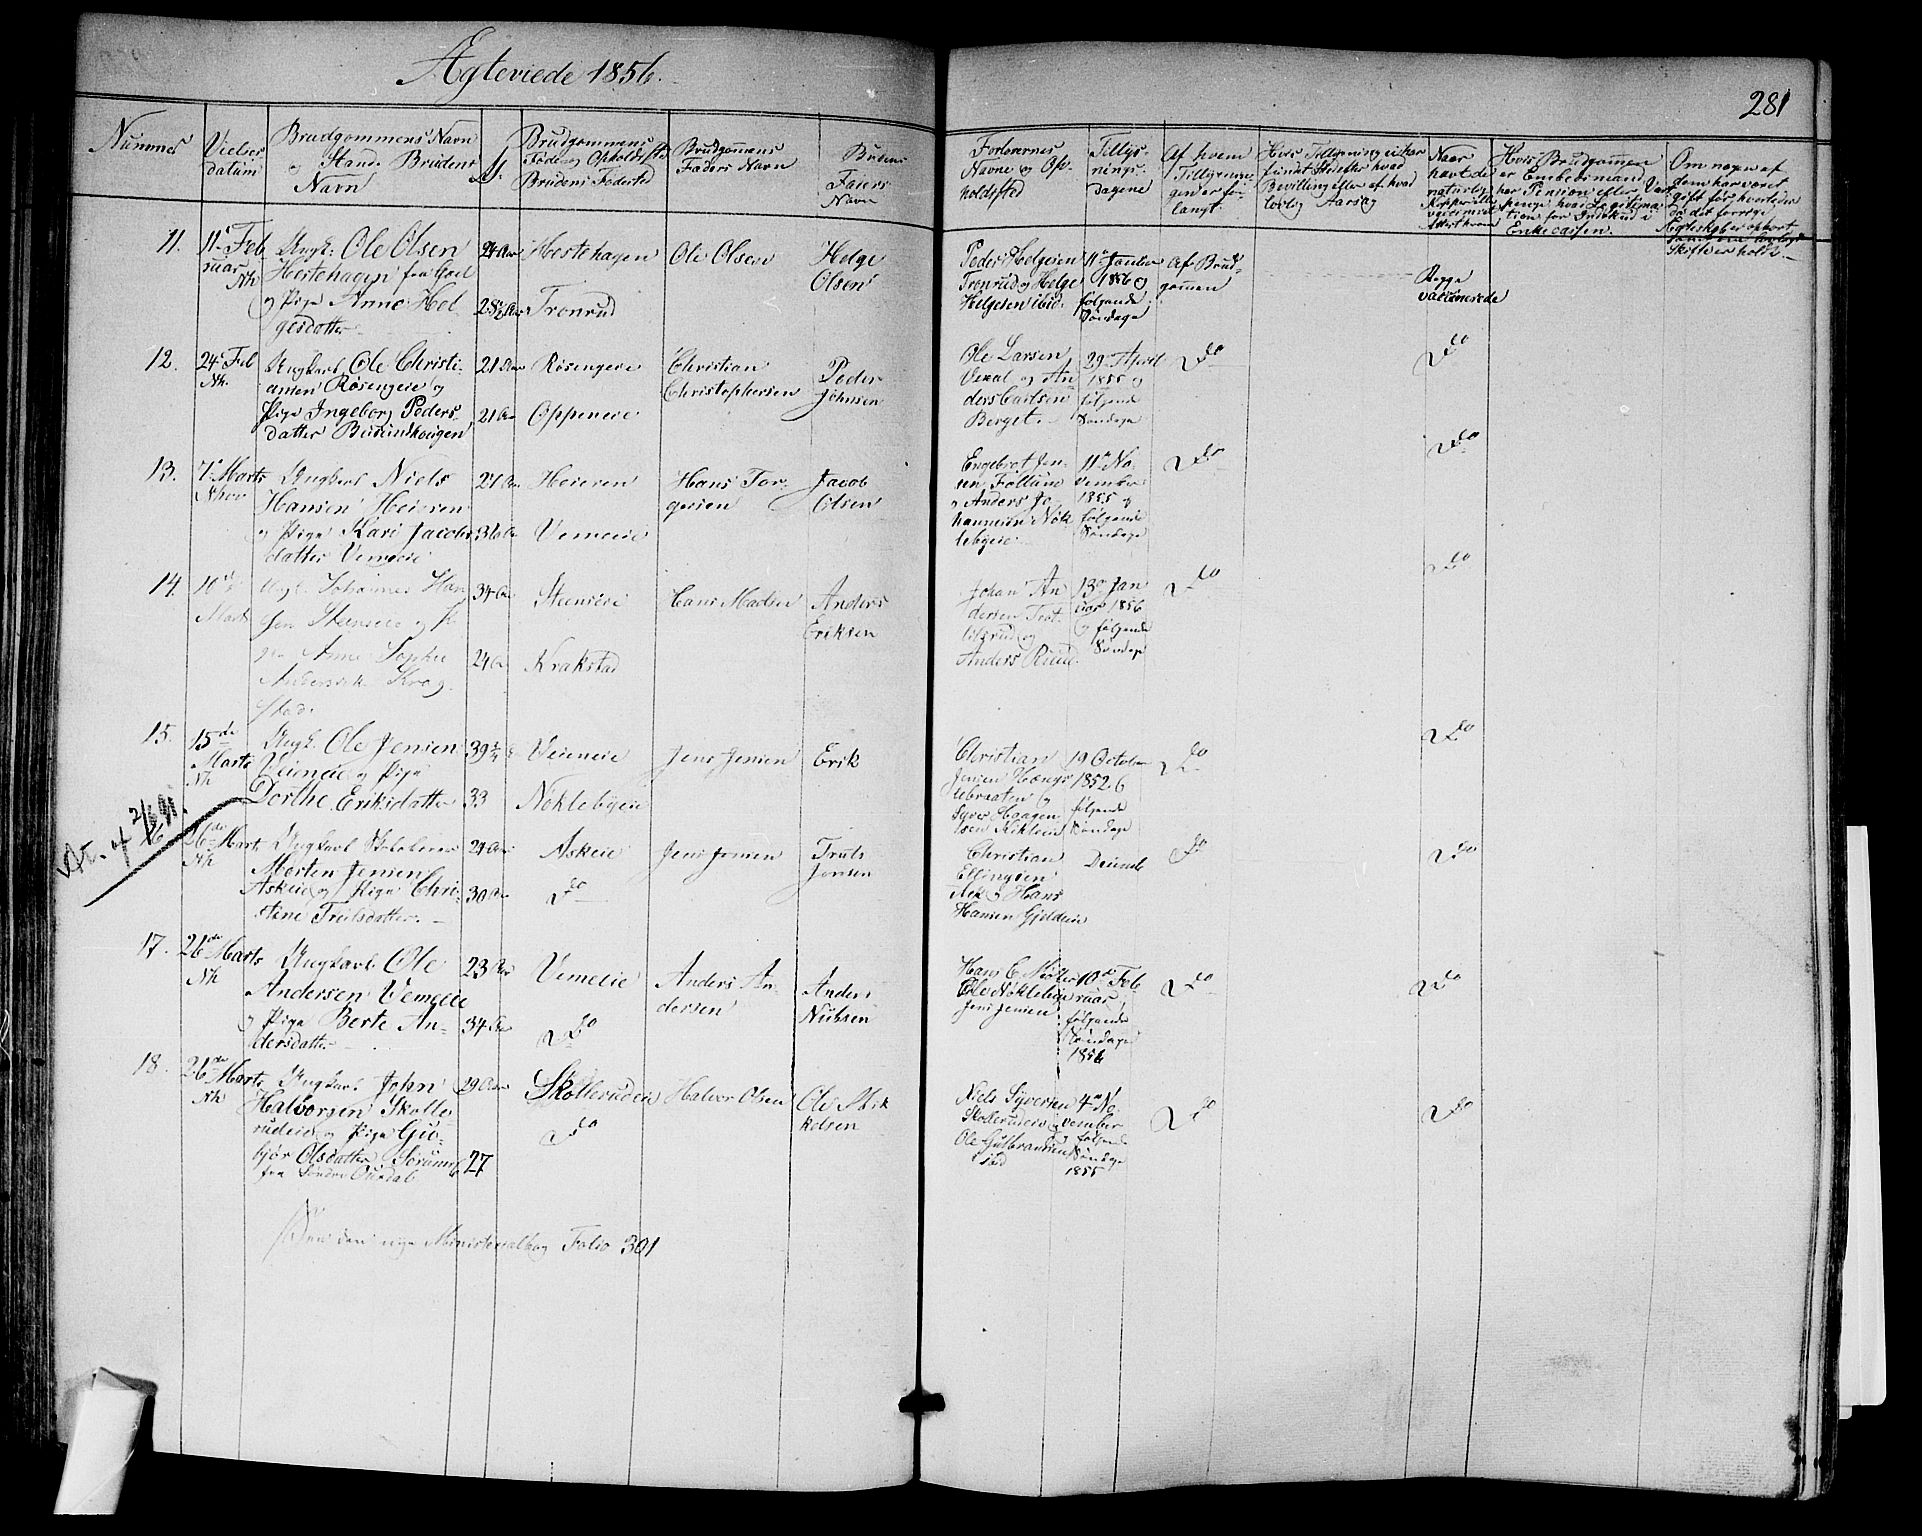 Ægteviede 1856.
281
Nummer
Vielses
datum
Brudgommens Navn
og Stand. Brudens
Navn
Brudgommens
Føde og Opholdsted
Brudens Fødested
Brudgommens
Faders Navn
Brudens
Faders
Navn
Forlovernes
Navne og Op-
holdsted
Tillys-
nings-
dagene
Af hvem
Tillysnin-
gen er for-
langt.
Hvis Tillysning ei har
fundet Sted efter hvad
Bevilling eller af hvad
lovlig Aarsag
Naar
havt de
naturlig
Kopper eller
vaccineret
Attest hvem
Hvis Brudgommen
er Embedsmand
har Pension eller
tion for Indskud i
Enkecassen.
Om nogen af
dem har været
gift før, hvorledes
da det forrige
Ægteskab er ophørt
Skifte er holdt
11.
11te Feb
ruar
Nh
Ungk: Ole Olsen
Hestehagen fra Gael
og Pige Anne Hel-
gesdatter
24 Aar
28½ Aar
Hestehagen
Tronrud
Ole Olsen
Helge
Olsen
Peder Helgesen
Tronrud og Helge
Helgesen ibid:
11te Januar
1856 og
følgende
Søndage
Af Brud-
gommen
Begge
vaccinerede
12.
24 Feb
Nh.
Ungkarl Ole Christi-
ansen Røsengeie og
Pige Ingeborg Peders-
datter Busundhougen
21 Aar
21 Aar
Røsengeie
Oppeneie
Christian
Christophersen
Peder
Johnsen
Ole Larsen
Vexal og An
ders Carlsen
Berget.
29 April
1855 og
følgende
Søndage
Do
Do
13.
7de Marts
Nhov
Ungkarl Niels
Hansen Heieren
og Pige Kari Jacobs
datter Vemeeie
27 Aar
36 Aar
Heieren
Vemeeie
Hans Tor-
gersen
Jacob
Olsen
Engebret Jen-
sen Follum
og Anders Jo-
hannesen Nøk
lebyeie
11te No-
vember
1855 og
følgende
Søndage
Do
Do
14.
10de
Marts
Ungk. Johannes Han
sen Steenseie og Pi
ge Anne Sophie
Andersdt. Krog-
stad.
34 Aar
24 Aar
Steenseie
Krakstad
Hans Madsen
Anders
Eriksen
Johan An
dersen Trot
lebrud og
Anders Ruud.
13de Jan
uar 1856
og følgende
Søndage
Do
Do
15.
15de
Marts
Nh
Ungk. Ole Jensen
Veieneie og Pige
Dorthe Eriksdatter
39¾
33
Veieneie
Nøklebyeie
Jens Jensen
Erik
Christian
Jensen Hængs
lebraaten og
Syver Haagen
sen Kiklein
19 October
1852 &
følgende
Søndage
Do
Do
att. 4 2/6 91.
16
26de Marts
Nh
Ungkarl
Morten Jensen
Askeie og Pige Chri-
stine Trulsdatter.
24 Aar
30 Aar
Askeie
Do
Jens Jensen
Truls
Jensen
Christian
Ellingsen
Ask & Hans
Hansen Gjeldeie
Do
Do
17.
26de Marts
Nh
Ungkarl Ole
Andersen Vemeeie
og Pige Berte An-
dersdatter
23 Aar
34 Aar
Vemeeie
Do
Anders An-
dersen
Anders
Nubsen
Hans C. Møller
Ole Nøklebye
Jens Jensen
10de Feb
ruar
følgende
Søndage
1856
Do
Do
18.
26de Marts
Nh
Ungkarl John
Halvorsen Skolle-
rudeie og Pige Gu-
bjør Olsdatter
fra Søndre Ourdal
29 Aar
27
Skollerudeie
Do
Halvor Olsen
Ole Mik
kelsen
Niels Syversen
Skollerudeie og
Ole Gulbrandsen
ibid
4de No-
vember
og følgende
Søndage
1855
Do
Do
den nye Ministerialbog Folio 301